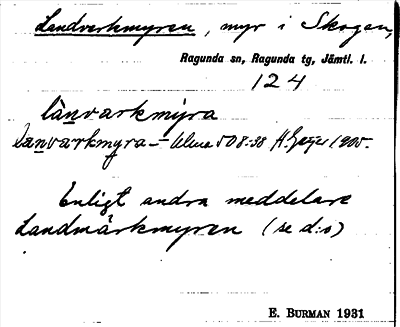 Landverkmyren, myr i Skogen,
Ragunda sn, Ragunda tg, Jämtl. l.
124
länvarkmýra
Lanvarkmyra – Ulma 508:38 H. Geijer 1905.
Enligt andra meddelare
Landmärkmyren (se d:o)
E. BURMAN 1931